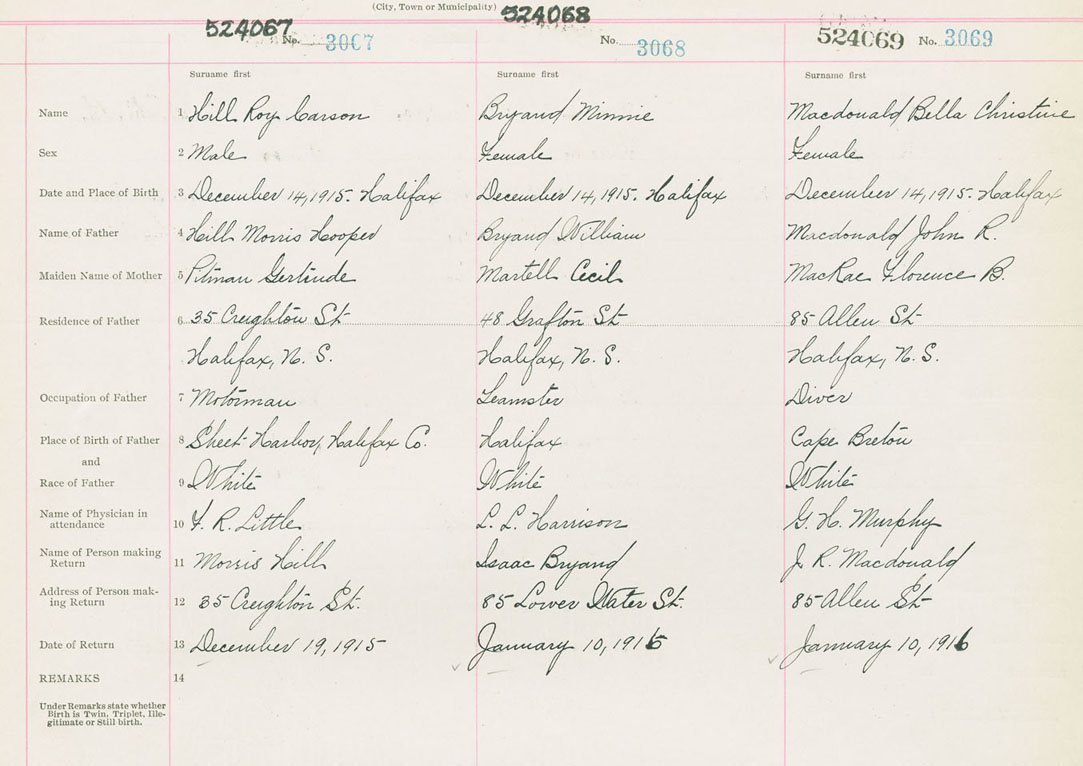 (City, Town or Municipality)
524067 No. 3067 524068 No. 3068 524069 No. 3069
Surname first Surname first Surname first
Name 1 Hill Roy Carson Bryand Minnie Macdonald Bella Christine
Sex 2 Male Female Female
Date and Place of Birth 3 December 14, 1915. Halifax December 14, 1915. Halifax December 14, 1915. Halifax
Name of Father 4 Hill Morris Hooper Bryand William Macdonald John R.
Maiden Name of Mother 5 Pitman Gertrude Martell Cecil MacRae Florence B.
Residence of Father 6 35 Creighton St 48 Grafton St 85 Allen St
Halifax, N. S. Halifax, N. S. Halifax, N. S.
Occupation of Father 7 Motorman Teamster Diver
Place of Birth of Father 8 Sheet Harbor, Halifax Co. Halifax Cape Breton
and
Race of Father 9 White White White
Name of Physician in
attendance 10 F. R. Little L. L. Harrison G. H. Murphy
Name of Person making
Return 11 Morris Hill Isaac Bryand J. R. Macdonald
Address of Person mak-
ing Return 12 35 Creighton St. 85 Lower Water St. 85 Allen St
Date of Return 13 December 19, 1915 January 10, 1916 January 10, 1916
REMARKS 14
Under Remarks state whether
Birth is Twin, Triplet, Ille-
gitimate or Still birth.